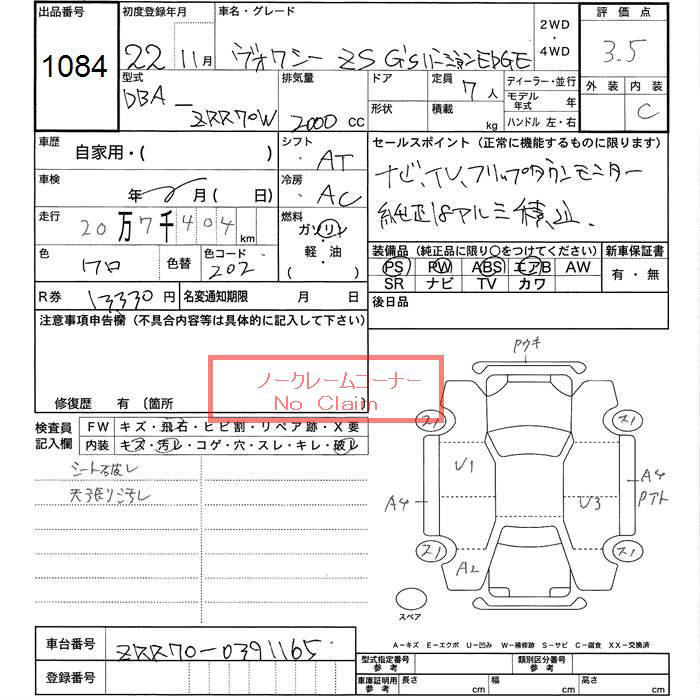 出品番号 初度登録年月 車名・グレード 2WD・4WD 評価点
1084 22年 11月 ヴォクシー ZS G'sバージョンEDGE 3.5
型式 排気量 ドア 定員 ディーラー・並行 外装 内装
DBA - ZRR70W 2000 cc 7人 モデル年式 年 C
形状 積載 kg ハンドル 左・右
車歴 自家用・( ) シフト AT セールスポイント(正常に機能するものに限ります)
車検 年 月( 日) 冷房 AC ナビ、TV、フリップダウンモニター
走行 20万7千404km 燃料 ガソリン・軽油・( ) 純正18アルミ積込.
色 クロ 色替 色コード 202 装備品(純正品に限り○をつけてください) 新車保証書
PS PW ABS エアB AW 有・無
SR ナビ TV カワ
R券 13330円 名変通知期限 月 日 後日品
注意事項申告欄(不具合内容等は具体的に記入して下さい)
ノークレームコーナー
No Claim
修復歴 有 〔箇所 〕
検査員記入欄 FW キズ・飛石・ヒビ割・リペア跡・X要
内装 キズ・汚レ・コゲ・穴・スレ・キレ・破レ
シート破レ
天張り汚レ
ス1 ス1
U1 A4 U3 A4
ス1 ス1
A2
スペア
A−キズ E−エクボ U−凹み W−補修跡 S−サビ C−腐食 XX−交換済
車台番号 ZRR70-0391165 型式指定番号 参考 類別区分番号 参考
登録番号 車庫証明用参考 長さ cm 幅 cm 高さ cm